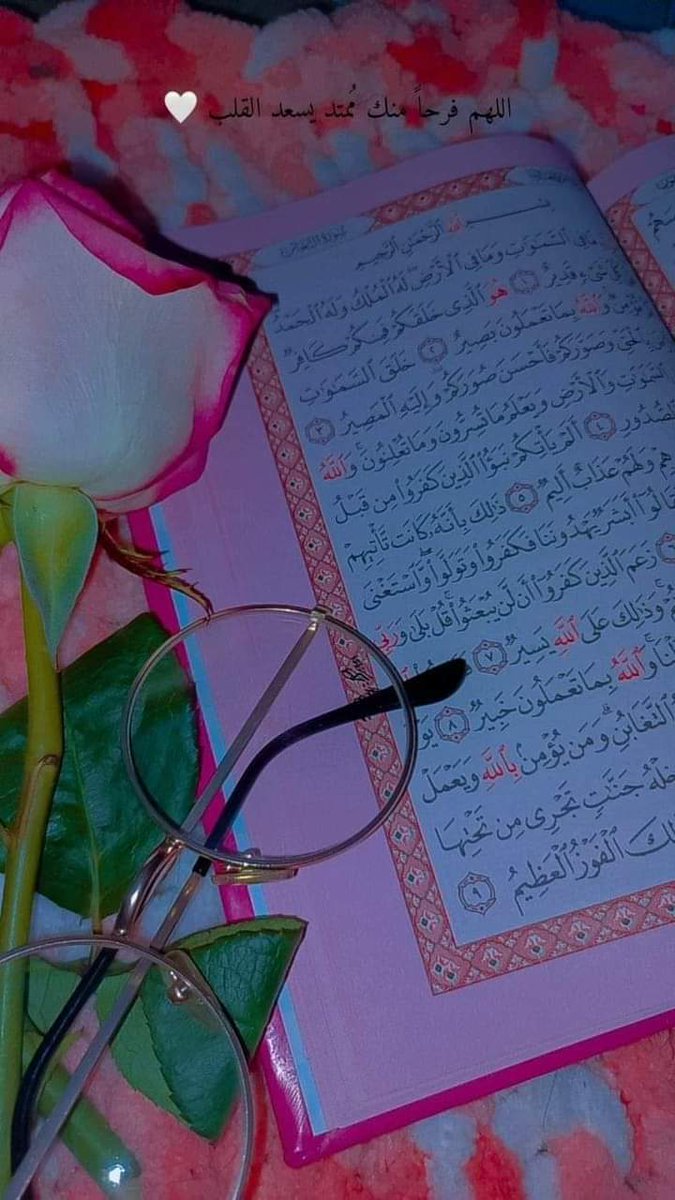 اللهم فرحاً منك مُمتد يسعد القلب 🤍
سُورَةُ التَّغَابُنِ
بِسْمِ ٱللَّهِ ٱلرَّحْمَٰنِ ٱلرَّحِيمِ
مَا فِي ٱلسَّمَٰوَٰتِ وَمَا فِي ٱلْأَرْضِ لَهُ ٱلْمُلْكُ وَلَهُ ٱلْحَمْدُ
شَيْءٍ قَدِيرٌ ١ هُوَ ٱلَّذِي خَلَقَكُمْ فَمِنكُمْ كَافِرٌ
وَٱللَّهُ بِمَا تَعْمَلُونَ بَصِيرٌ ٢ خَلَقَ ٱلسَّمَٰوَٰتِ
وَصَوَّرَكُمْ فَأَحْسَنَ صُوَرَكُمْ وَإِلَيْهِ ٱلْمَصِيرُ ٣
ٱلسَّمَٰوَٰتِ وَٱلْأَرْضِ وَيَعْلَمُ مَا تُسِرُّونَ وَمَا تُعْلِنُونَ وَٱللَّهُ
ٱلصُّدُورِ ٤ أَلَمْ يَأْتِكُمْ نَبَؤُا۟ ٱلَّذِينَ كَفَرُوا۟ مِن قَبْلُ
وَلَهُمْ عَذَابٌ أَلِيمٌ ٥ ذَٰلِكَ بِأَنَّهُۥ كَانَت تَّأْتِيهِمْ
أَبَشَرٌ يَهْدُونَنَا فَكَفَرُوا۟ وَتَوَلَّوا۟ وَّٱسْتَغْنَى
زَعَمَ ٱلَّذِينَ كَفَرُوٓا۟ أَن لَّن يُبْعَثُوا۟ قُلْ بَلَىٰ وَرَبِّي
وَذَٰلِكَ عَلَى ٱللَّهِ يَسِيرٌ ٧
وَٱللَّهُ بِمَا تَعْمَلُونَ خَبِيرٌ ٨
ٱلتَّغَابُنِ وَمَن يُؤْمِنۢ بِٱللَّهِ وَيَعْمَلْ
جَنَّٰتٍ تَجْرِي مِن تَحْتِهَا
ٱلْفَوْزُ ٱلْعَظِيمُ ٩